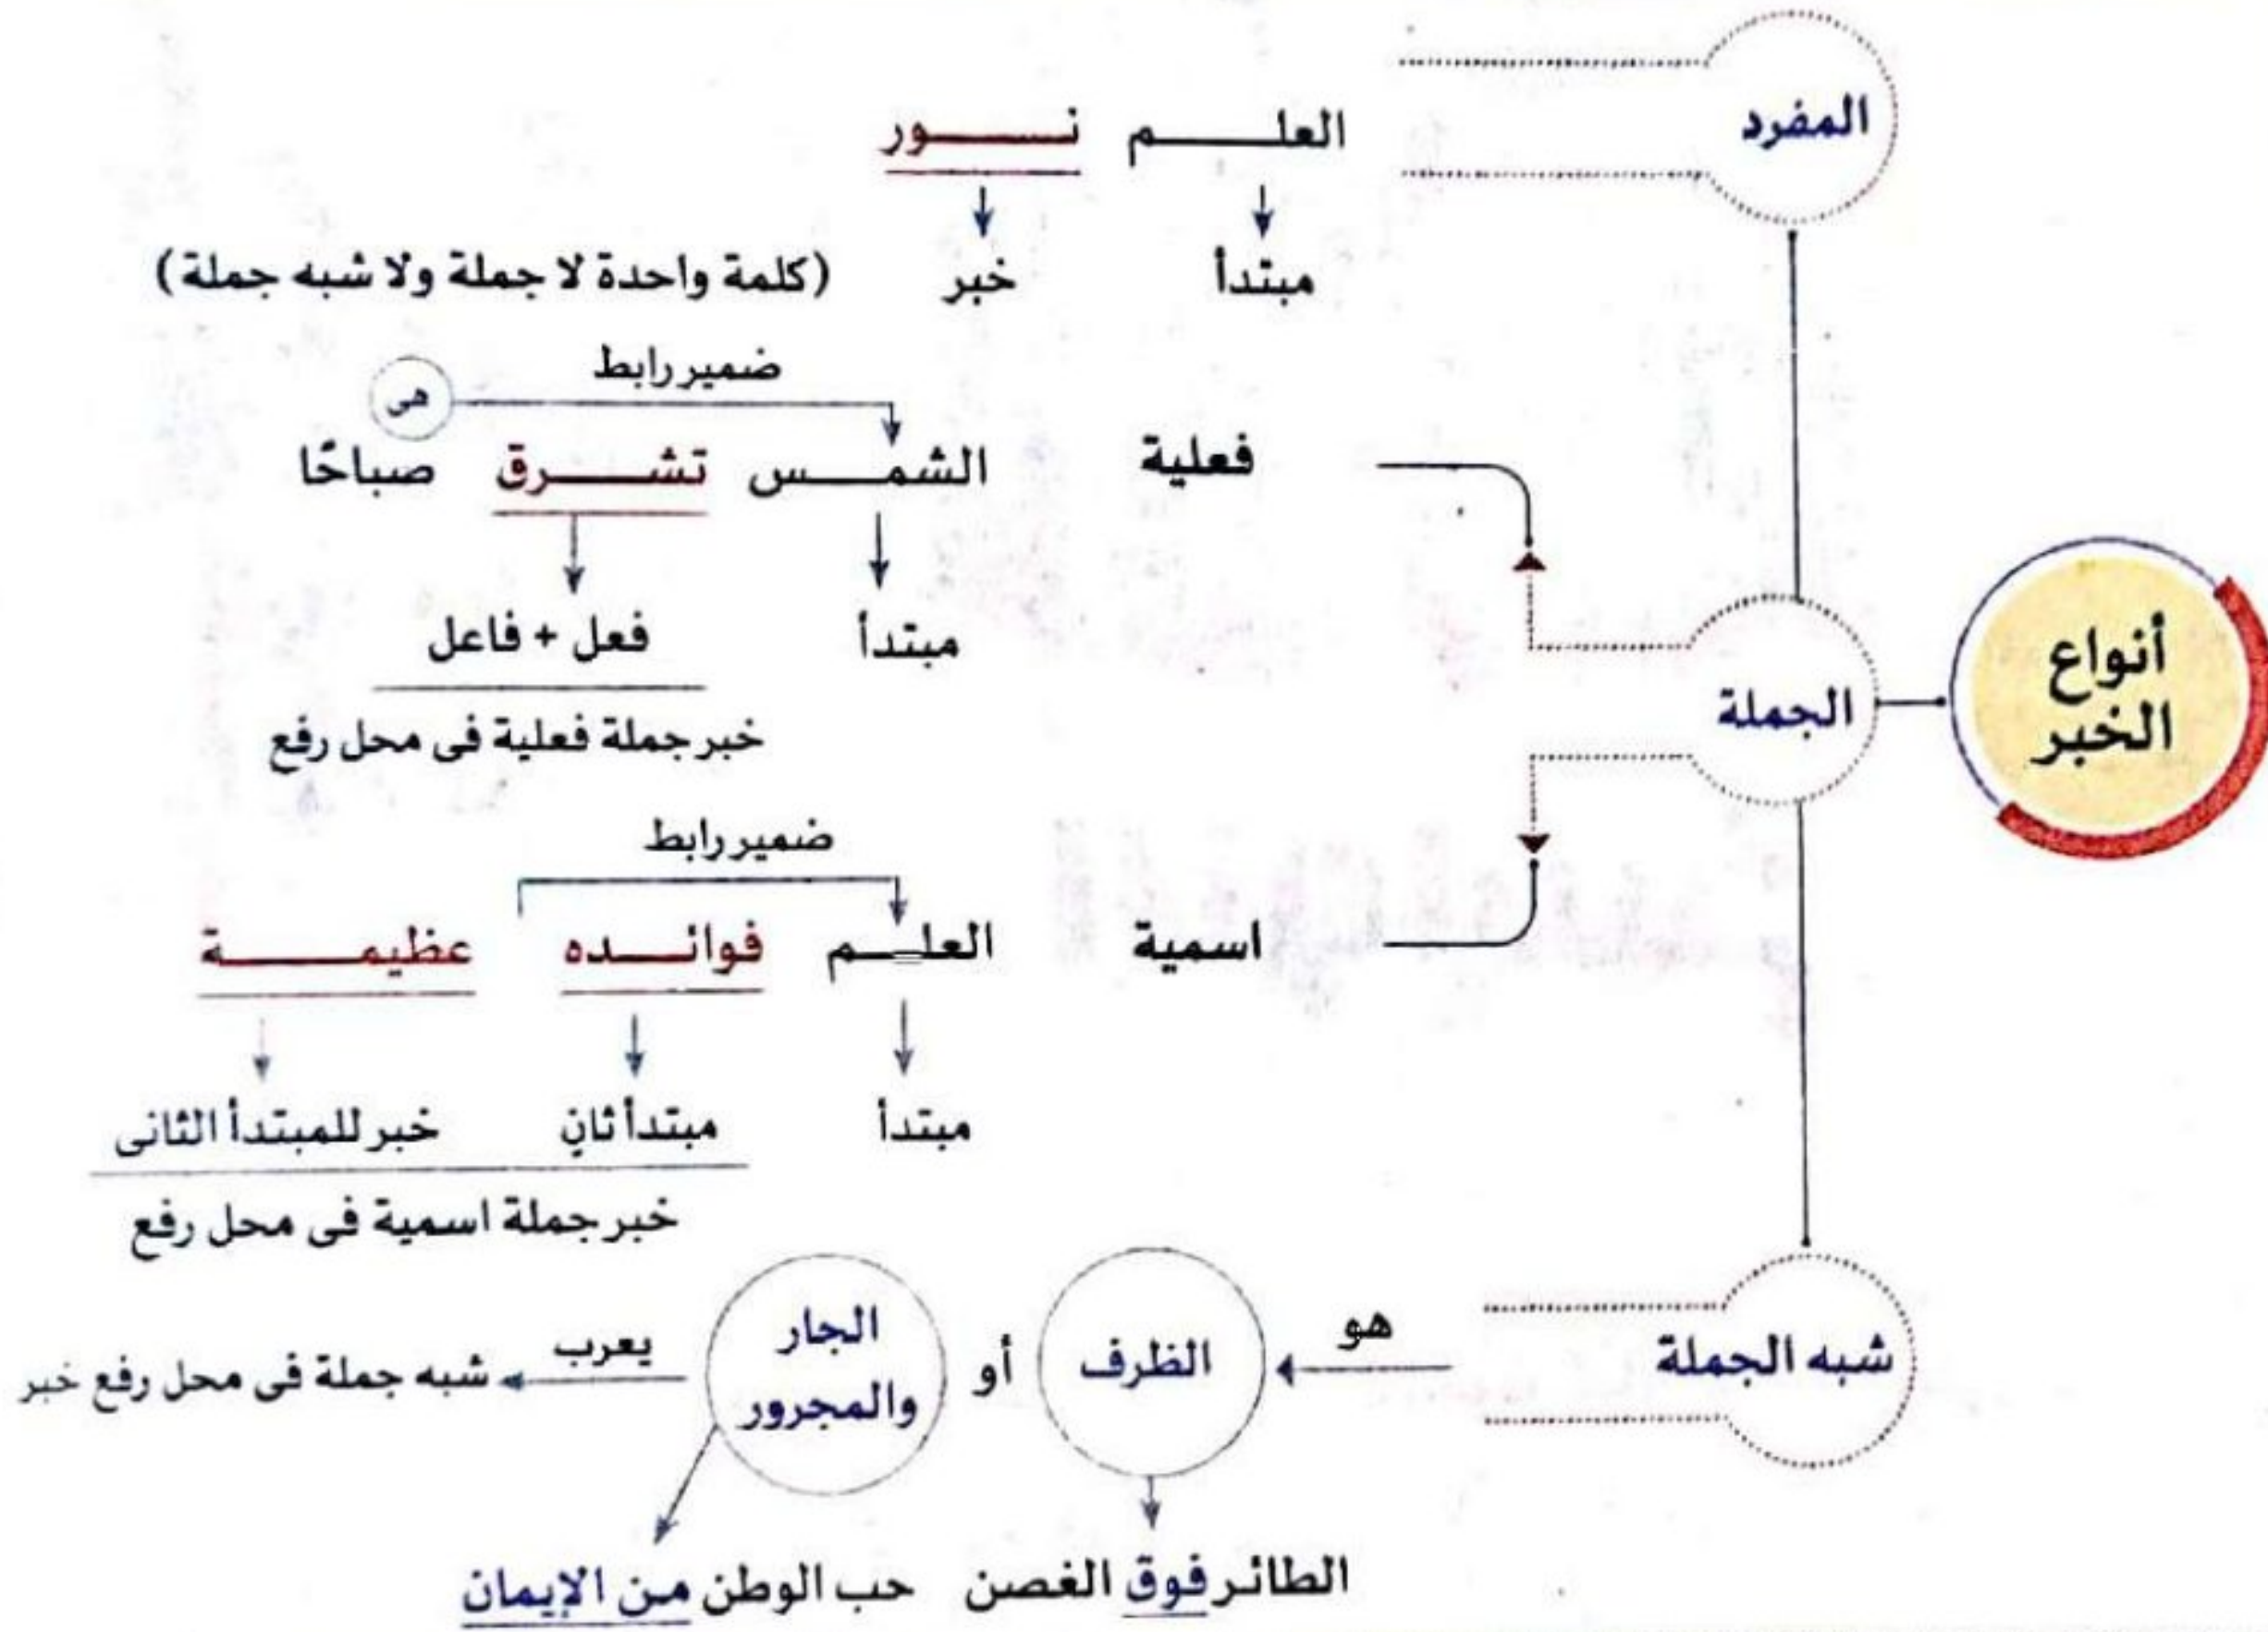 أنواع
الخبر
المفرد
العلم نور
مبتدأ خبر (كلمة واحدة لا جملة ولا شبه جملة)
الجملة
فعلية
ضمير رابط
هى
الشمس تشرق صباحًا
مبتدأ فعل + فاعل
خبر جملة فعلية فى محل رفع
اسمية
ضمير رابط
العلم فوائده عظيمة
مبتدأ مبتدأ ثانٍ خبر للمبتدأ الثانى
خبر جملة اسمية فى محل رفع
شبه الجملة هو الظرف أو الجار والمجرور يعرب شبه جملة فى محل رفع خبر
الطائر فوق الغصن حب الوطن من الإيمان